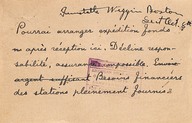 Wiggin Boston
Pourrai arranger expédition fonds
après réception ici. Décline respon-
sabilité, assurance impossible. Envoi
argent suffisant Besoins financiers
des stations pleinement fournis